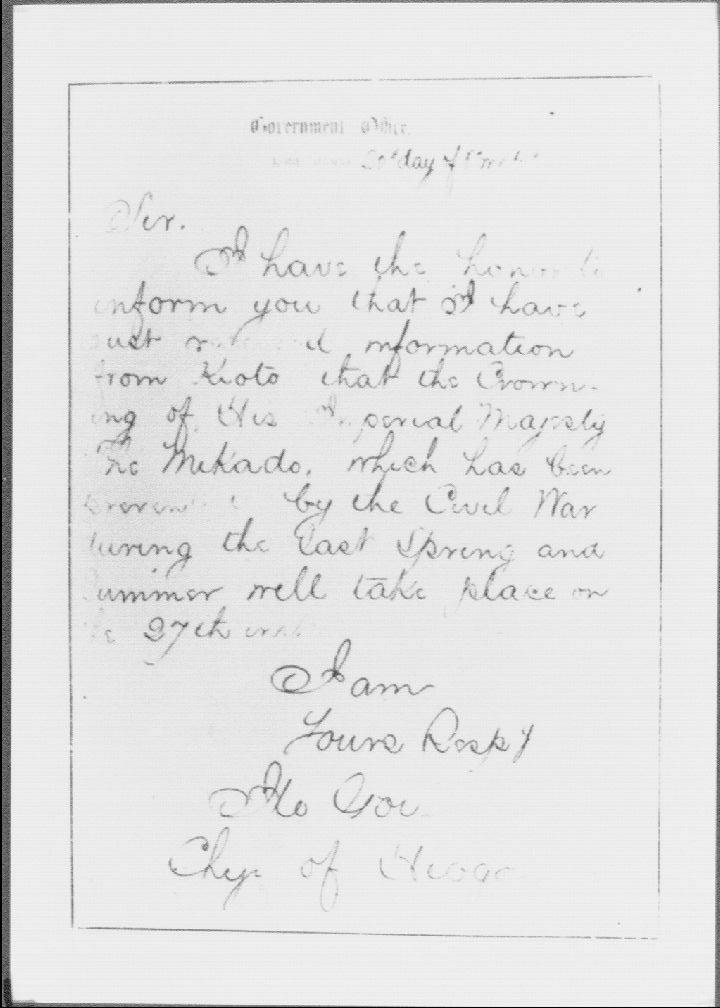 Government Office.
20th day of
Sir.
I have the honor to
inform you that I have
just information
from Kioto that the Crown-
ing of His Imperial Majesty
The Mikado, which has been
by the Civil War
during the last Spring and
Summer will take place on
the 27th inst
I am
Yours Respy
Ito Gov
of Hiogo